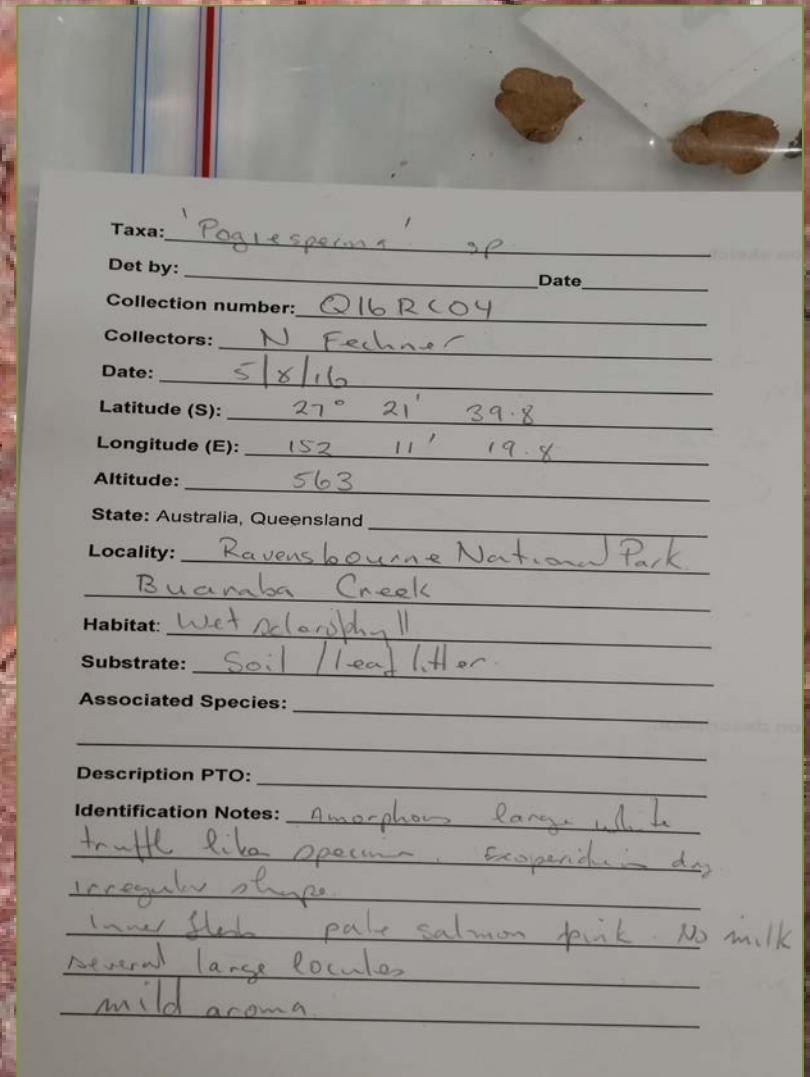 Taxa: 'Pogiesperma' sp
Det by: Date
Collection number: Q16RC04
Collectors: N Fechner
Date: 5/8/16
Latitude (S): 27° 21' 39.8
Longitude (E): 152 11' 19.8
Altitude: 563
State: Australia, Queensland
Locality: Ravensbourne National Park
Buaraba Creek
Habitat: Wet sclerophyll
Substrate: Soil / leaf litter.
Associated Species:
Description PTO:
Identification Notes: Amorphous large white
truffle like specimen. Exoperidium dry
irregular shape.
Inner flesh pale salmon pink. No milk
several large locules
mild aroma.